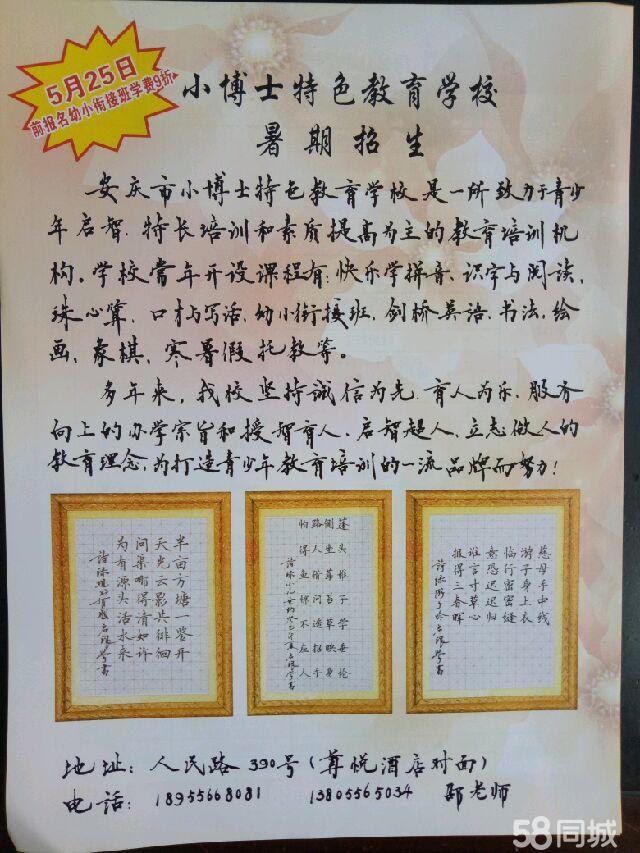 5月25日
前报名幼小衔接班学费9折
小博士特色教育学校
暑期招生
安庆市小博士特色教育学校是一所致力于青少
年启智、特长培训和素质提高为主的教育培训机
构。学校常年开设课程有：快乐学拼音、识字与阅读、
珠心算、口才与写话、幼小衔接班、剑桥英语、书法、绘
画、象棋、寒暑假托教等。
多年来，我校坚持诚信为先、育人为乐、服务
向上的办学宗旨和授智育人、启智超人、立志做人的
教育理念，为打造青少年教育培训的一流品牌而努力！
半亩方塘一鉴开
天光云影共徘徊
问渠哪得清如许
为有源头活水来
蓬头稚子学垂纶
侧坐莓苔草映身
路人借问遥招手
怕得鱼惊不应人
慈母手中线
游子身上衣
临行密密缝
意恐迟迟归
谁言寸草心
报得三春晖
地址：人民路390号（尊悦酒店对面）
电话：18955668081 13805565034 邵老师
58同城